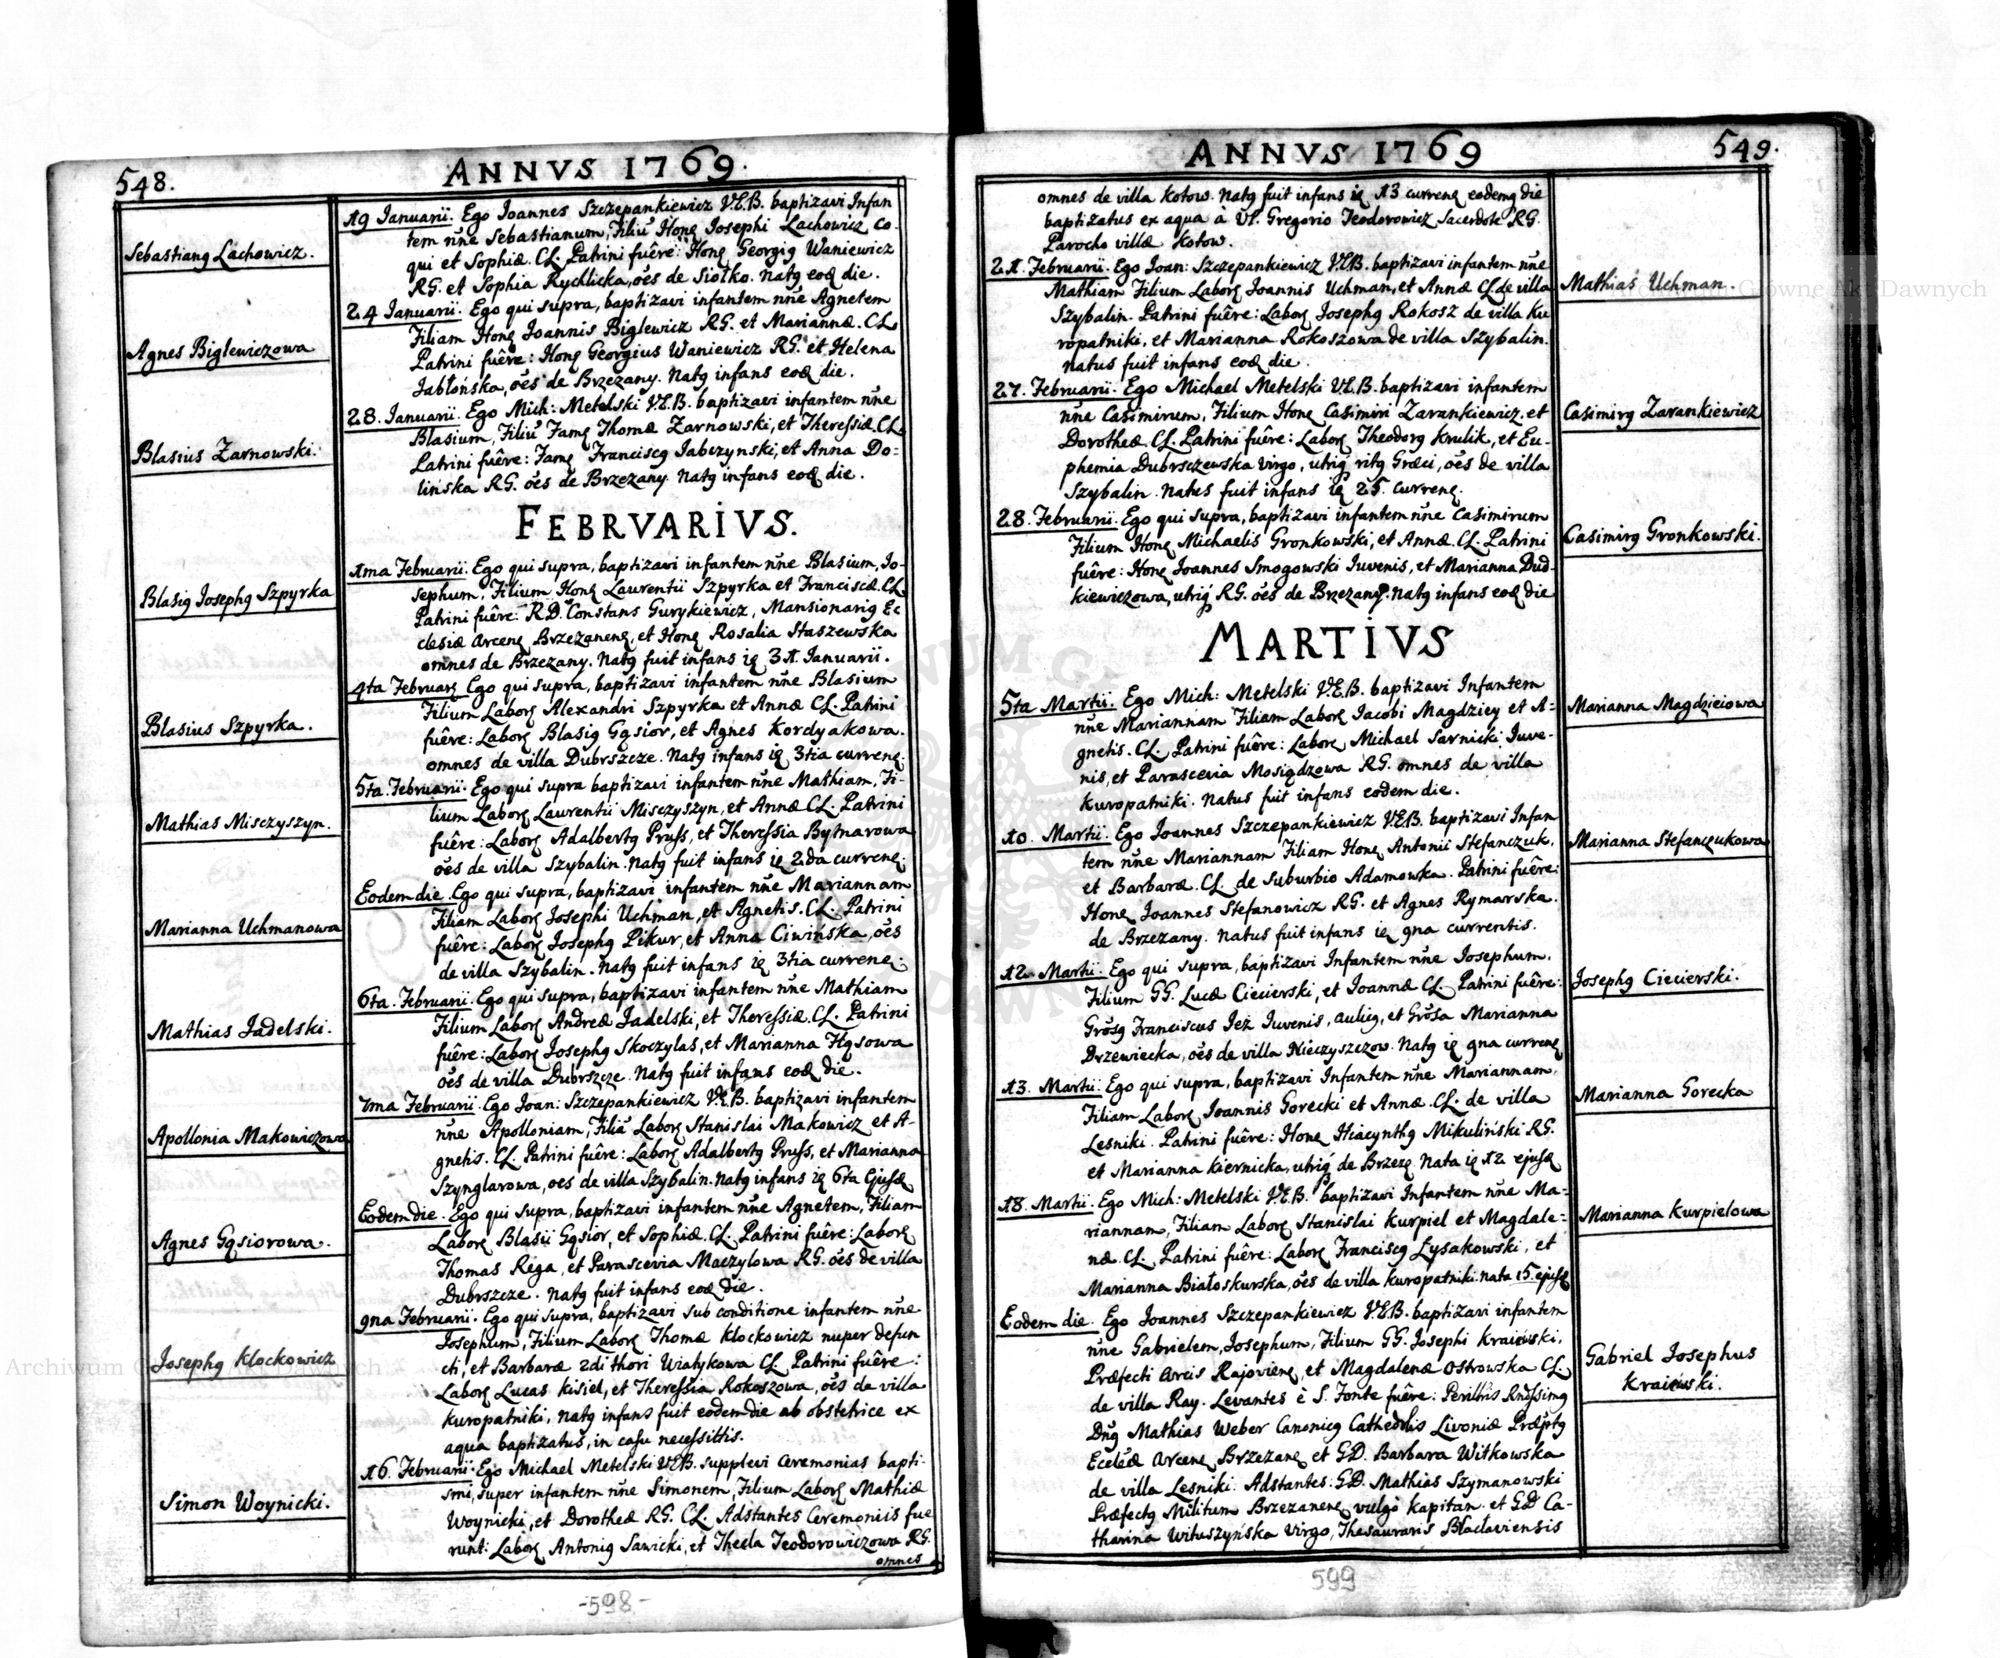 548.
ANNVS 1769.
Sebastianꝯ Lachowicz.
19 Ianuarii. Ego Joannes Szczepankiewicz V.E.B. baptizavi Infan
tem nn̄e Sebastianum, Filiū Honꝭ Josephi Lachowicz co-
qui et Sophiæ. CL. Patrini fuêre: Honꝭ Georgiꝯ Waniewicz
RG. et Sophia Rychlicka, oēs de Siołko. Natꝯ eod die.
Agnes Biglewiczowa
24 Ianuarii. Ego qui supra, baptizavi infantem nn̄e Agnetem
Filiam Honꝭ Joannis Biglewicz RG. et Mariannæ. CL
Patrini fuêre: Honꝭ Georgius Waniewicz RG. et Helena
Jabłońska, oēs de Brzezany. Natꝯ infans eod die.
Blasius Zarnowski.
28. Ianuarii. Ego Mich: Metelski V.E.B. baptizavi infantem nn̄e
Blasium, Filiū Famꝭ Thomæ Zarnowski, et Theressiæ. CL.
Patrini fuêre: Famꝭ Franciscꝯ Jabczynski, et Anna Do-
lińska RG. oēs de Brzezany. Natꝯ infans eod die.
FEBRVARIVS.
Blasiꝯ Josephꝯ Szpyrka
1ma Februarii. Ego qui supra, baptizavi infantem nn̄e Blasium, Jo-
sephum, Filium Honꝭ Laurentii Szpyrka et Franciscæ. CL
Patrini fuêre: RD. Constans Gurykiewicz, Mansionariꝯ Ec
clesiæ Arcenꝭ Brzezanenꝭ, et Honꝭ Rosalia Staszewska
omnes de Brzezany. Natꝯ fuit infans iꝭ 31. Ianuarii.
Blasius Szpyrka.
4ta Februarꝭ Ego qui supra, baptizavi infantem nn̄e Blasium
Filium Laborꝭ Alexandri Szpyrka et Annæ CL. Patrini
fuêre: Laborꝭ Blasiꝯ Gąsior, et Agnes Kordyakowa.
omnes de villa Dubrszcze. Natꝯ infans iꝭ 3tia currenꝭ.
Mathias Misczyszyn.
5ta. Februarii. Ego qui supra baptizavi infantem nn̄e Mathiam, Fi-
lium Laborꝭ Laurentii Misczyszyn, et Annæ CL. Patrini
fuêre: Laborꝭ Adalbertꝯ Pruss, et Theressia Bytnarowa
oēs de villa Szybalin. Natꝯ fuit infans iꝭ 2da currenꝭ.
Marianna Uchmanowa
Eodem die. Ego qui supra, baptizavi infantem nn̄e Mariannam
Filiam Laborꝭ Josephi Uchman, et Agnetis. CL. Patrini
fuêre: Laborꝭ Josephꝯ Pikur, et Anna Ciwińska, oēs
de villa Szybalin. Natꝯ fuit infans iꝭ 3tia currenꝭ.
Mathias Jadelski.
6ta. Februarii. Ego qui supra, baptizavi infantem nn̄e Mathiam
Filium Laborꝭ Andreæ Jadelski, et Theressiæ. CL. Patrini
fuêre: Laborꝭ Josephꝯ Skoczylas, et Marianna Hąsowa
oēs de villa Dubrszcze. Natꝯ fuit infans eod die.
Apollonia Makowiczowa
7ma Februarii. Ego Joan: Szczepankiewicz V.E.B. baptizavi infantem
nn̄e Apolloniam, Filiā Laborꝭ Stanislai Makowicz et A-
gnetis. CL. Patrini fuêre: Laborꝭ Adalbertꝯ Pruss, et Marianna
Szynglarowa, oes de villa Szybalin. Natꝯ infans iꝭ 6ta Ejusd
Agnes Gąsiorowa.
Eodem die. Ego qui supra, baptizavi infantem nn̄e Agnetem, Filiam
Laborꝭ Blasii Gąsior, et Sophiæ. CL. Patrini fuêre: Laborꝭ
Thomas Rega, et Parascevia Maczylowa RG. oēs de villa
Dubrszcze. Natꝯ fuit infans eod die.
Josephꝯ Klockowicz
9na Februarii. Ego qui supra, baptizavi sub conditione infantem nn̄e
Josephum, Filium Laborꝭ Thomæ Klockowicz nuper defun
cti, et Barbaræ 2di thori Wiatykowa CL. Patrini fuêre:
Laborꝭ Lucas Kisiel, et Theressia Rokoszowa, oēs de villa
Kuropatniki, Natꝯ infans fuit eodem die ab obstetrice ex
aqua baptizatus, in casu necessittis.
Simon Woynicki.
16. Februarii. Ego Michael Metelski V.E.B. supplevi Ceremonias bapti-
smi, super infantem nn̄e Simonem, Filium Laborꝭ Mathiæ
Woynicki, et Dorotheæ RG. CL. Adstantes Ceremoniis fue
runt: Laborꝭ Antoniꝯ Sawicki, et Thecla Teodorowiczowa RG.
omnes
-598-
ANNVS 1769
549.
omnes de villa Kotow. Natꝯ fuit infans iꝭ 13 currenꝭ eodemq die
baptizatus ex aqua à VP. Gregorio Teodorowicz Sacerdote RG.
Parocho villæ Kotow.
Mathias Uchman.
21. Februarii. Ego Joan: Szczepankiewicz V.E.B. baptizavi infantem nn̄e
Mathiam Filium Laborꝭ Joannis Uchman, et Annæ CL de villa
Szybalin. Patrini fuêre: Laborꝭ Josephꝯ Rokosz de villa Ku
ropatniki, et Marianna Rokoszowa de villa Szybalin.
Natus fuit infans eod die.
Casimirꝯ Zarankiewicz
27. Februarii. Ego Michael Metelski V.E.B. baptizavi infantem
nn̄e Casimirum, Filium Honꝭ Casimiri Zarankiewicz, et
Dorotheæ CL. Patrini fuêre: Laborꝭ Theodorꝯ Krulik, et Eu-
phemia Dubrsczewska Virgo, utriꝯ ritꝯ Græci, oēs de villa
Szybalin. Natus fuit infans iꝭ 25. currenꝭ.
Casimirꝯ Gronkowski.
28. Februarii. Ego qui supra, baptizavi infantem nn̄e Casimirum
Filium Honꝭ Michaelis Gronkowski, et Annæ CL. Patrini
fuêre: Honꝭ Joannes Smogowski Iuvenis, et Marianna Dud-
kiewiczowa, utriꝯ RG. oēs de Brzezany. Natꝯ infans eod die
MARTIVS
Marianna Magdzieiowa
5ta Martii. Ego Mich: Metelski V.E.B. baptizavi Infantem
nn̄e Mariannam Filiam Laborꝭ Jacobi Magdziey et A-
gnetis. CL. Patrini fuêre: Laborꝭ Michael Sarnicki Juve-
nis, et Parascevia Mosiądzowa RG. omnes de villa
Kuropatniki. Natus fuit infans eodem die.
Marianna Stefanczukowa
10. Martii. Ego Joannes Szczepankiewicz V.E.B. baptizavi Infan
tem nn̄e Mariannam Filiam Honꝭ Antonii Stefanczuk,
et Barbaræ CL. de Suburbio Adamowka. Patrini fuêre:
Honꝭ Joannes Stefanowicz RG. et Agnes Rymarska.
de Brzezany. Natus fuit infans iꝭ 9na currentis.
Josephꝯ Ciecierski.
12. Martii. Ego qui supra, baptizavi Infantem nn̄e Josephum.
Filium GG. Lucæ Ciecierski, et Joannæ CL. Patrini fuêre:
Grōsꝯ Franciscus Jeż Iuvenis, auliꝯ, et Grōsa Marianna
Drzewiecka, oēs de villa Hieczyszczow. Natꝯ iꝭ 9na currenꝭ
Marianna Gorecka
13. Martii. Ego qui supra, baptizavi Infantem nn̄e Mariannam,
Filiam Laborꝭ Joannis Gorecki et Annæ. CL. de villa
Lesniki. Patrini fuêre: Honꝭ Hiacynthꝯ Mikuliński RG.
et Marianna Kiernicka, utriꝯ de Brzezꝭ. Nata iꝭ 12 ejusd
Marianna Kurpielowa
18. Martii. Ego Mich: Metelski V.E.B. baptizavi Infantem nn̄e Ma-
riannam, Filiam Laborꝭ Stanislai Kurpiel et Magdale-
næ CL. Patrini fuêre: Laborꝭ Franciscꝯ Łysakowski, et
Marianna Białoskurska, oēs de villa Kuropatniki. Nata 15 ejusd
Gabriel Josephus
Kraiewski.
Eodem die. Ego Joannes Szczepankiewicz V.E.B. baptizavi infantem
nn̄e Gabrielem, Josephum, Filium GG. Josephi Kraiewski,
Præfecti Arcis Rajovienꝭ, et Magdalenæ Ostrowska CL.
de villa Ray. Levantes è S. Fonte fuêre: Perillris Rndssimꝯ
Dnꝯ Mathias Weber Canonicꝯ Cathedrlis Livoniæ Præptꝯ
Eccleæ Arcenꝭ Brzezanꝭ et GD. Barbara Witkowska
de villa Lesniki. Adstantes: GD. Mathias Szymanowski
Præfectꝯ Militum Brzezanenꝭ vulgò Kapitan et GD Ca-
tharina Wituszyńska Virgo, Thesauraris Bracłaviensis
599
Archiwum Główne Akt Dawnych